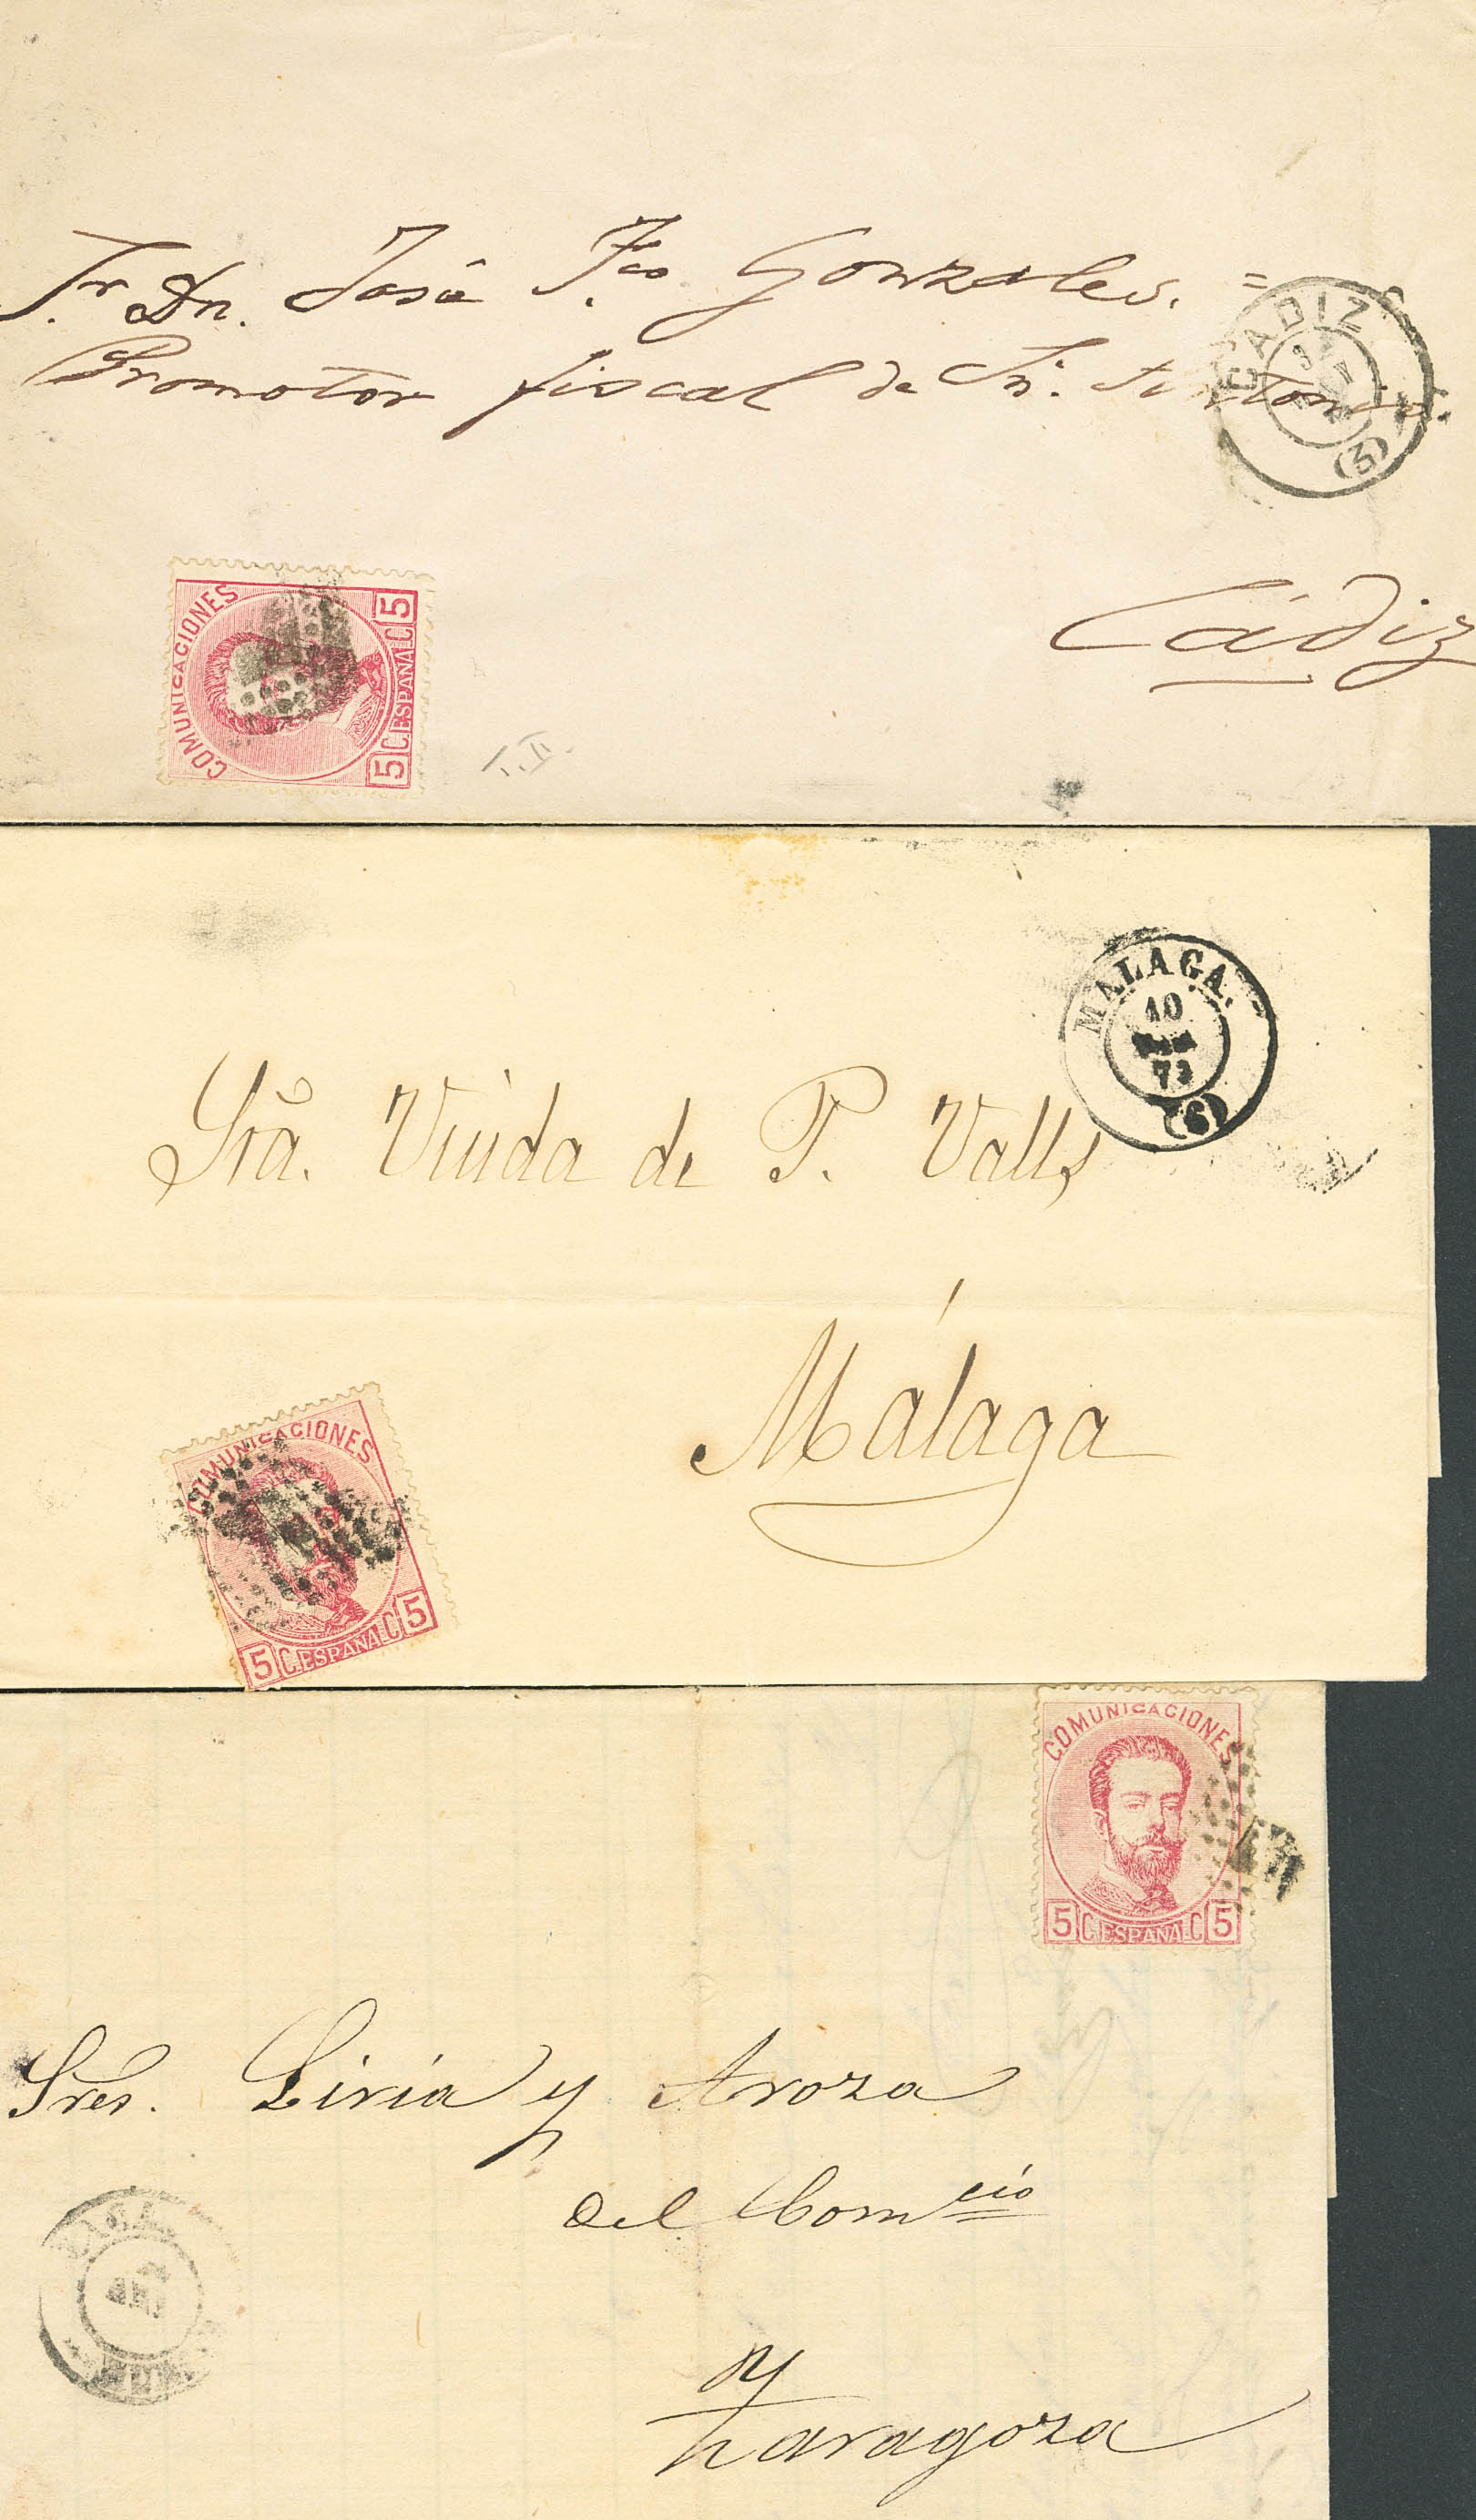 Sr. Dn. José Fco Gonzales. =
Promotor fiscal de Sn. Antonio.
CADIZ
(3)
COMUNICACIONES
5 C. ESPAÑA C 5
T. II.
Cádiz
MALAGA.
10
73
(6)
Sra. Viuda de P. Valls
Málaga
COMUNICACIONES
5 C. ESPAÑA C 5
COMUNICACIONES
5 C. ESPAÑA C 5
Sres. Liria y Aroza
del Comcio
Zaragoza